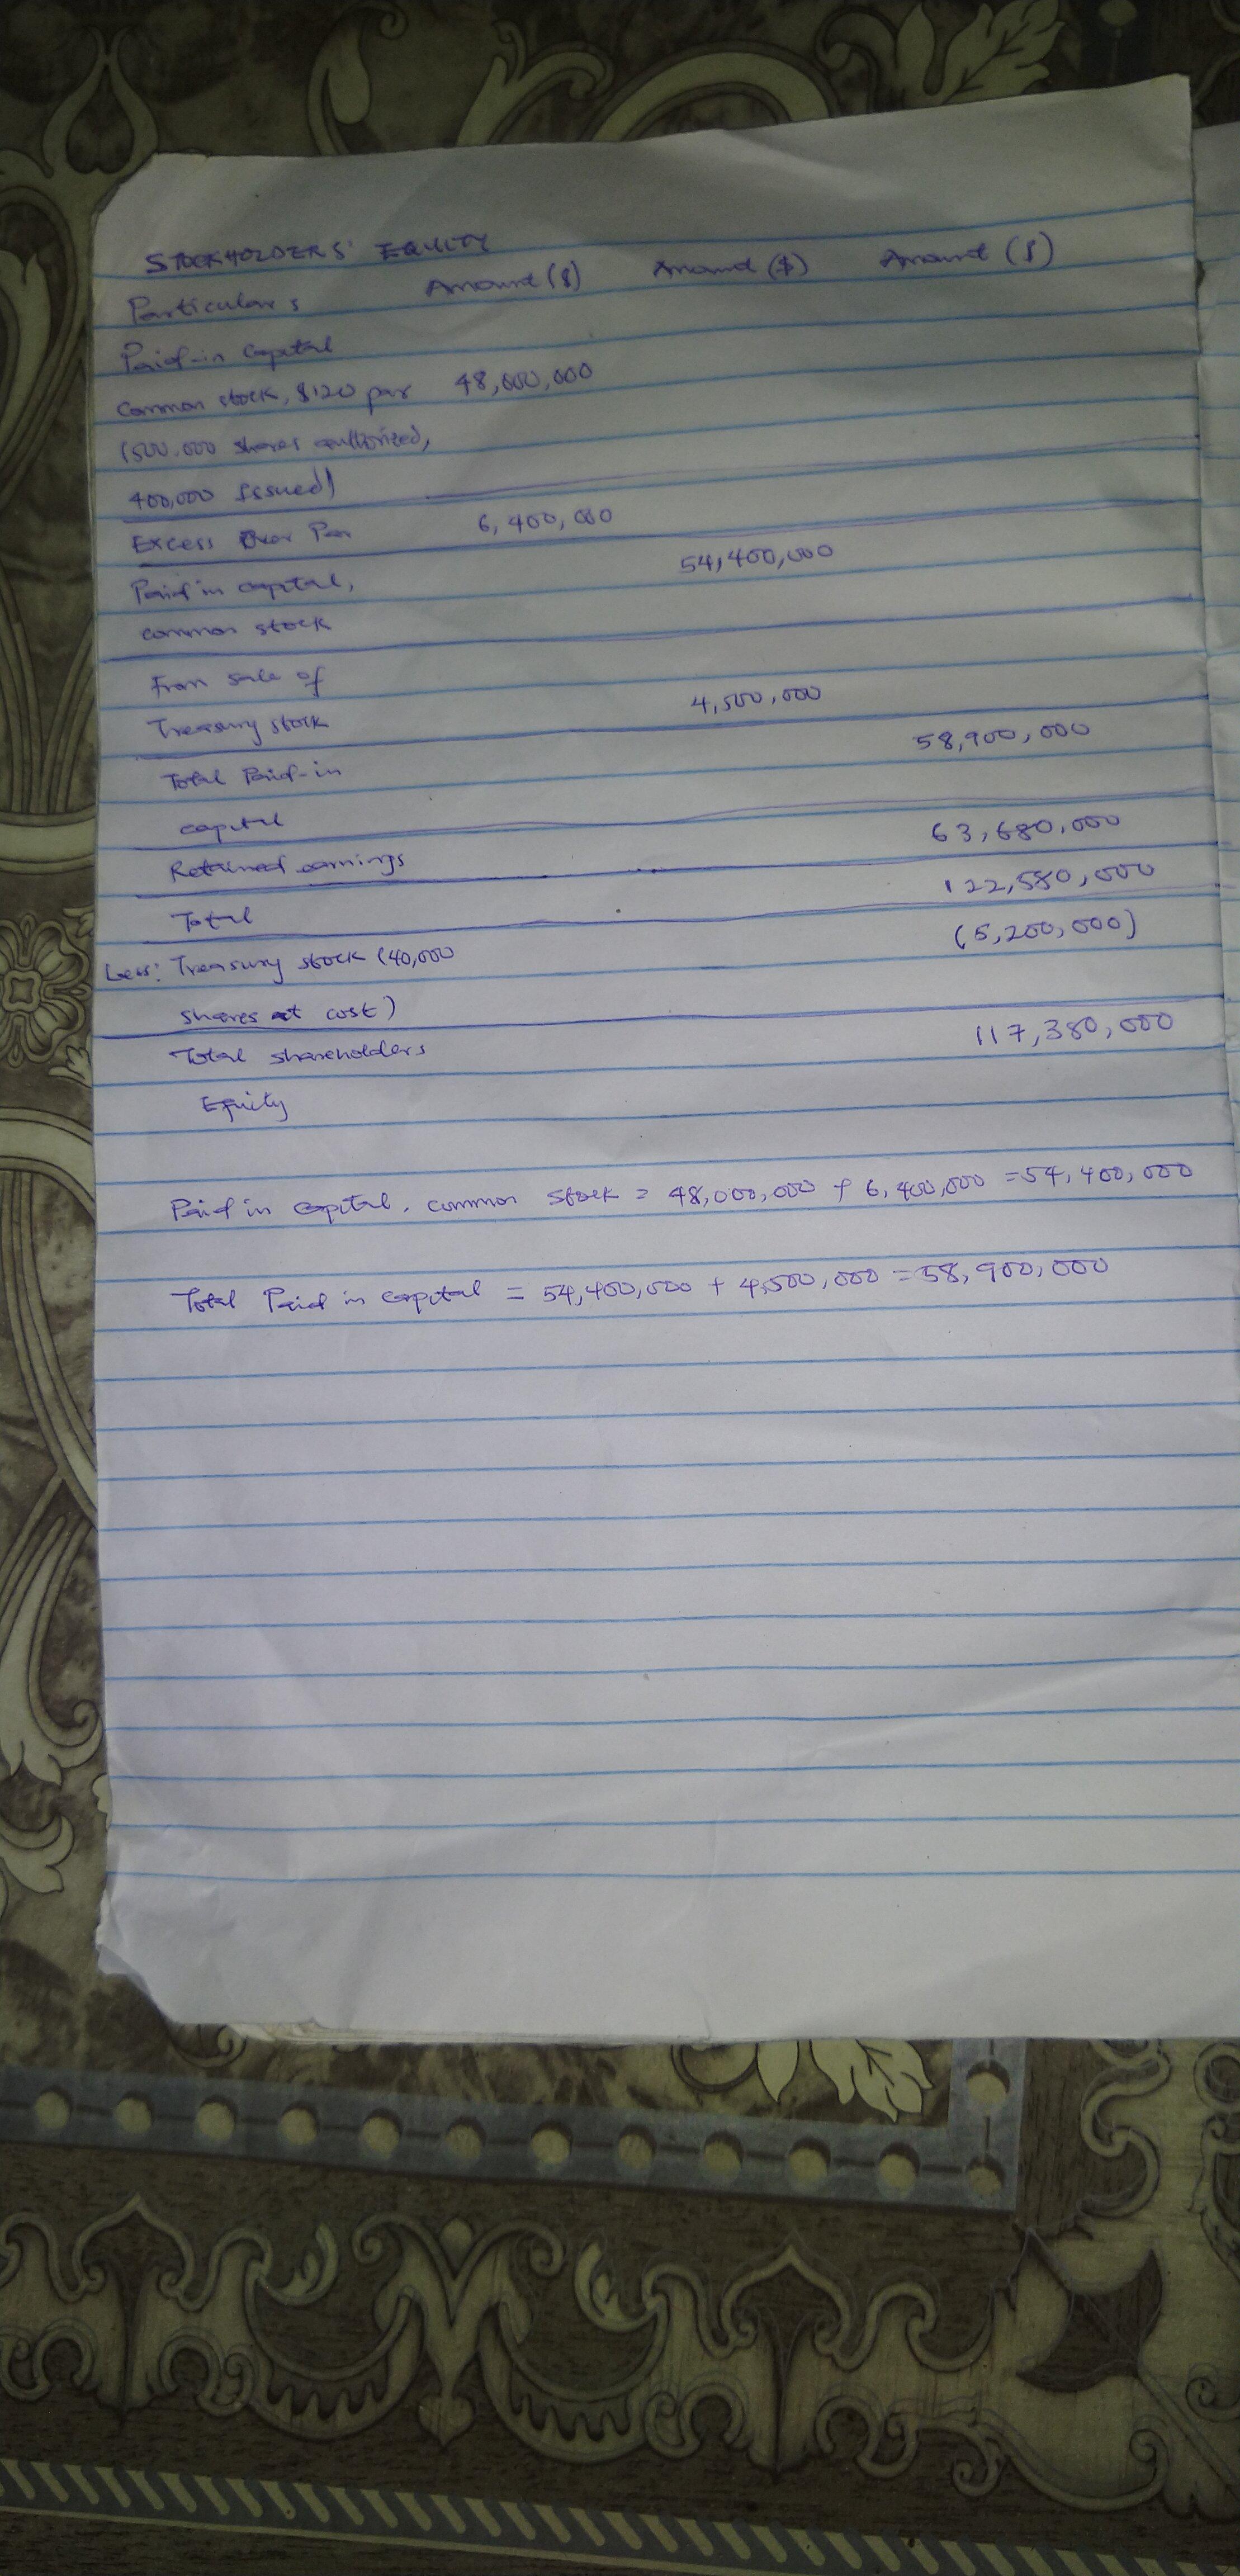 STOCKHOLDERS' EQUITY
Particulars Amount ($) Amount ($) Amount ($)
Paid-in Capital
Common stock, $120 par 48,000,000
(500,000 shares authorized,
400,000 issued)
Excess over Par 6,400,000
Paid in capital, 54,400,000
common stock
From sale of
Treasury stock 4,500,000
Total Paid-in 58,900,000
capital
Retained earnings 63,680,000
Total 122,580,000
Less: Treasury stock (40,000 (5,200,000)
shares at cost)
Total shareholders 117,380,000
Equity
Paid in capital, common stock = 48,000,000 + 6,400,000 = 54,400,000
Total Paid in capital = 54,400,000 + 4,500,000 = 58,900,000